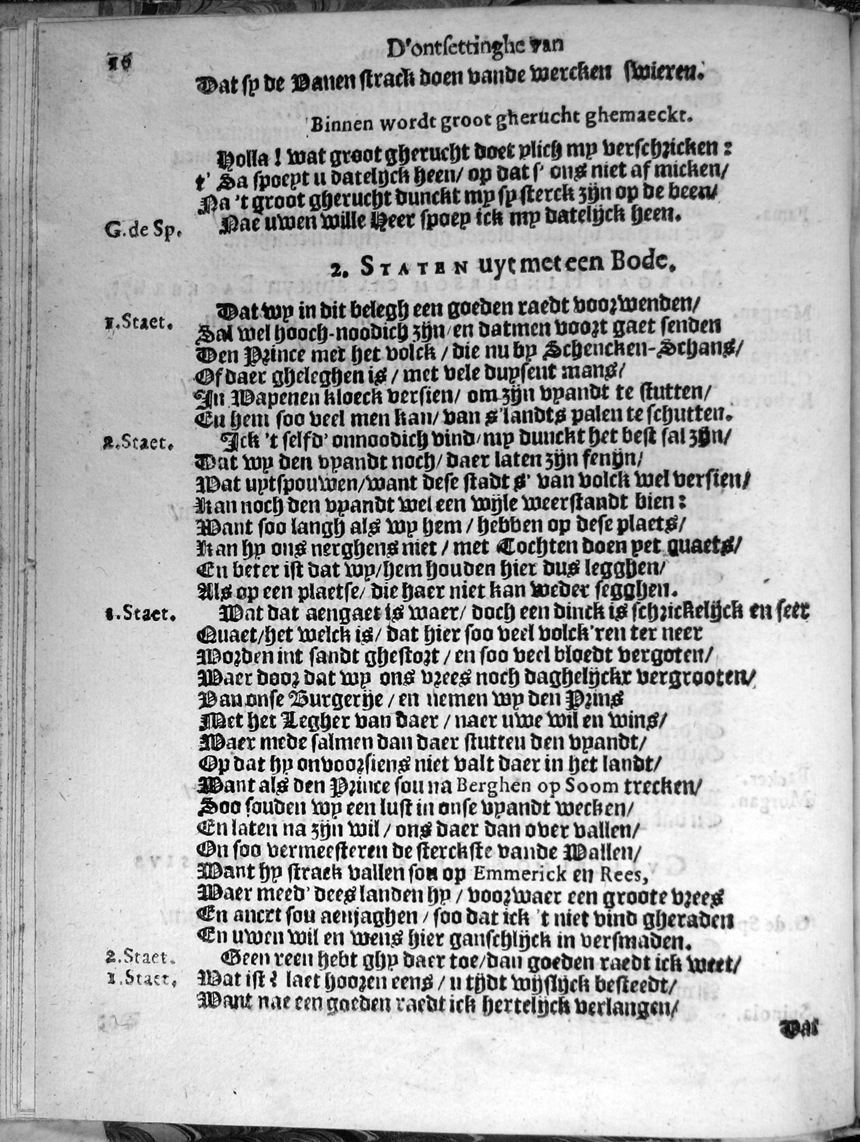 16
D'ontsettinghe van
Dat sy de Vanen strack doen vande wercken swieren.
Binnen wordt groot gherucht ghemaeckt.
Holla! wat groot gherucht doet ylich my verschricken:
t' Sa spoeyt u datelyck heen/ op dat s' ons niet af micken/
Na 't groot gherucht dunckt my sy sterck zijn op de been/
G. de Sp. Nae uwen wille Heer spoey ick my datelyck heen.
2. STATEN uyt met een Bode.
1. Staet. Dat wy in dit belegh een goeden raedt voorwenden/
Sal wel hooch-noodich zijn/ en datmen voort gaet senden
Den Prince met het volck / die nu by Schencken-Schans/
Of daer gheleghen is / met vele duysent mans/
In Wapenen kloeck versien/ om zijn vyandt te stutten/
En hem soo veel men kan/ van s'landts palen te schutten.
2. Staet. Ick 't selfd' onnoodich vind/ my dunckt het best sal zijn/
Dat wy den vyandt noch/ daer laten zijn fenijn/
Wat uytspouwen/want dese stadt s' van volck wel versien/
Kan noch den vyandt wel een wijle weerstandt bien:
Want soo langh als wy hem / hebben op dese plaets/
Kan hy ons nerghens niet / met Tochten doen yet quaets/
En beter ist dat wy/hem houden hier dus legghen/
Als op een plaetse/ die haer niet kan weder segghen.
1. Staet. Wat dat aengaet is waer/ doch een dinck is schrickelijck en seer
Quaet/het welck is/ dat hier soo veel volck'ren ter neer
Worden int sandt ghestort / en soo veel bloedt vergoten/
Waer door dat wy ons vrees noch daghelijckx vergrooten/
Van onse Burgerije / en nemen wy den Prins
Met het Legher van daer / naer uwe wil en wins/
Waer mede salmen dan daer stutten den vyandt/
Op dat hy onvoorsiens niet valt daer in het landt/
Want als den Prince sou na Berghen op Soom trecken/
Soo souden wy een lust in onse vyandt wecken/
En laten na zijn wil / ons daer dan over vallen/
On soo vermeesteren de sterckste vande Wallen/
Want hy strack vallen sou op Emmerick en Rees,
Waer meed' dees landen hy / voorwaer een groote vrees
En ancxt sou aenjaghen / soo dat ick 't niet vind gheraden
En uwen wil en wens hier ganschlijck in versmaden.
2. Staet. Geen reen hebt ghy daer toe/dan goeden raedt ick weet/
1. Staet, Wat ist? laet hooren eens / u tijdt wijslijck besteedt/
Want nae een goeden raedt ick hertelijck verlangen/
Dat